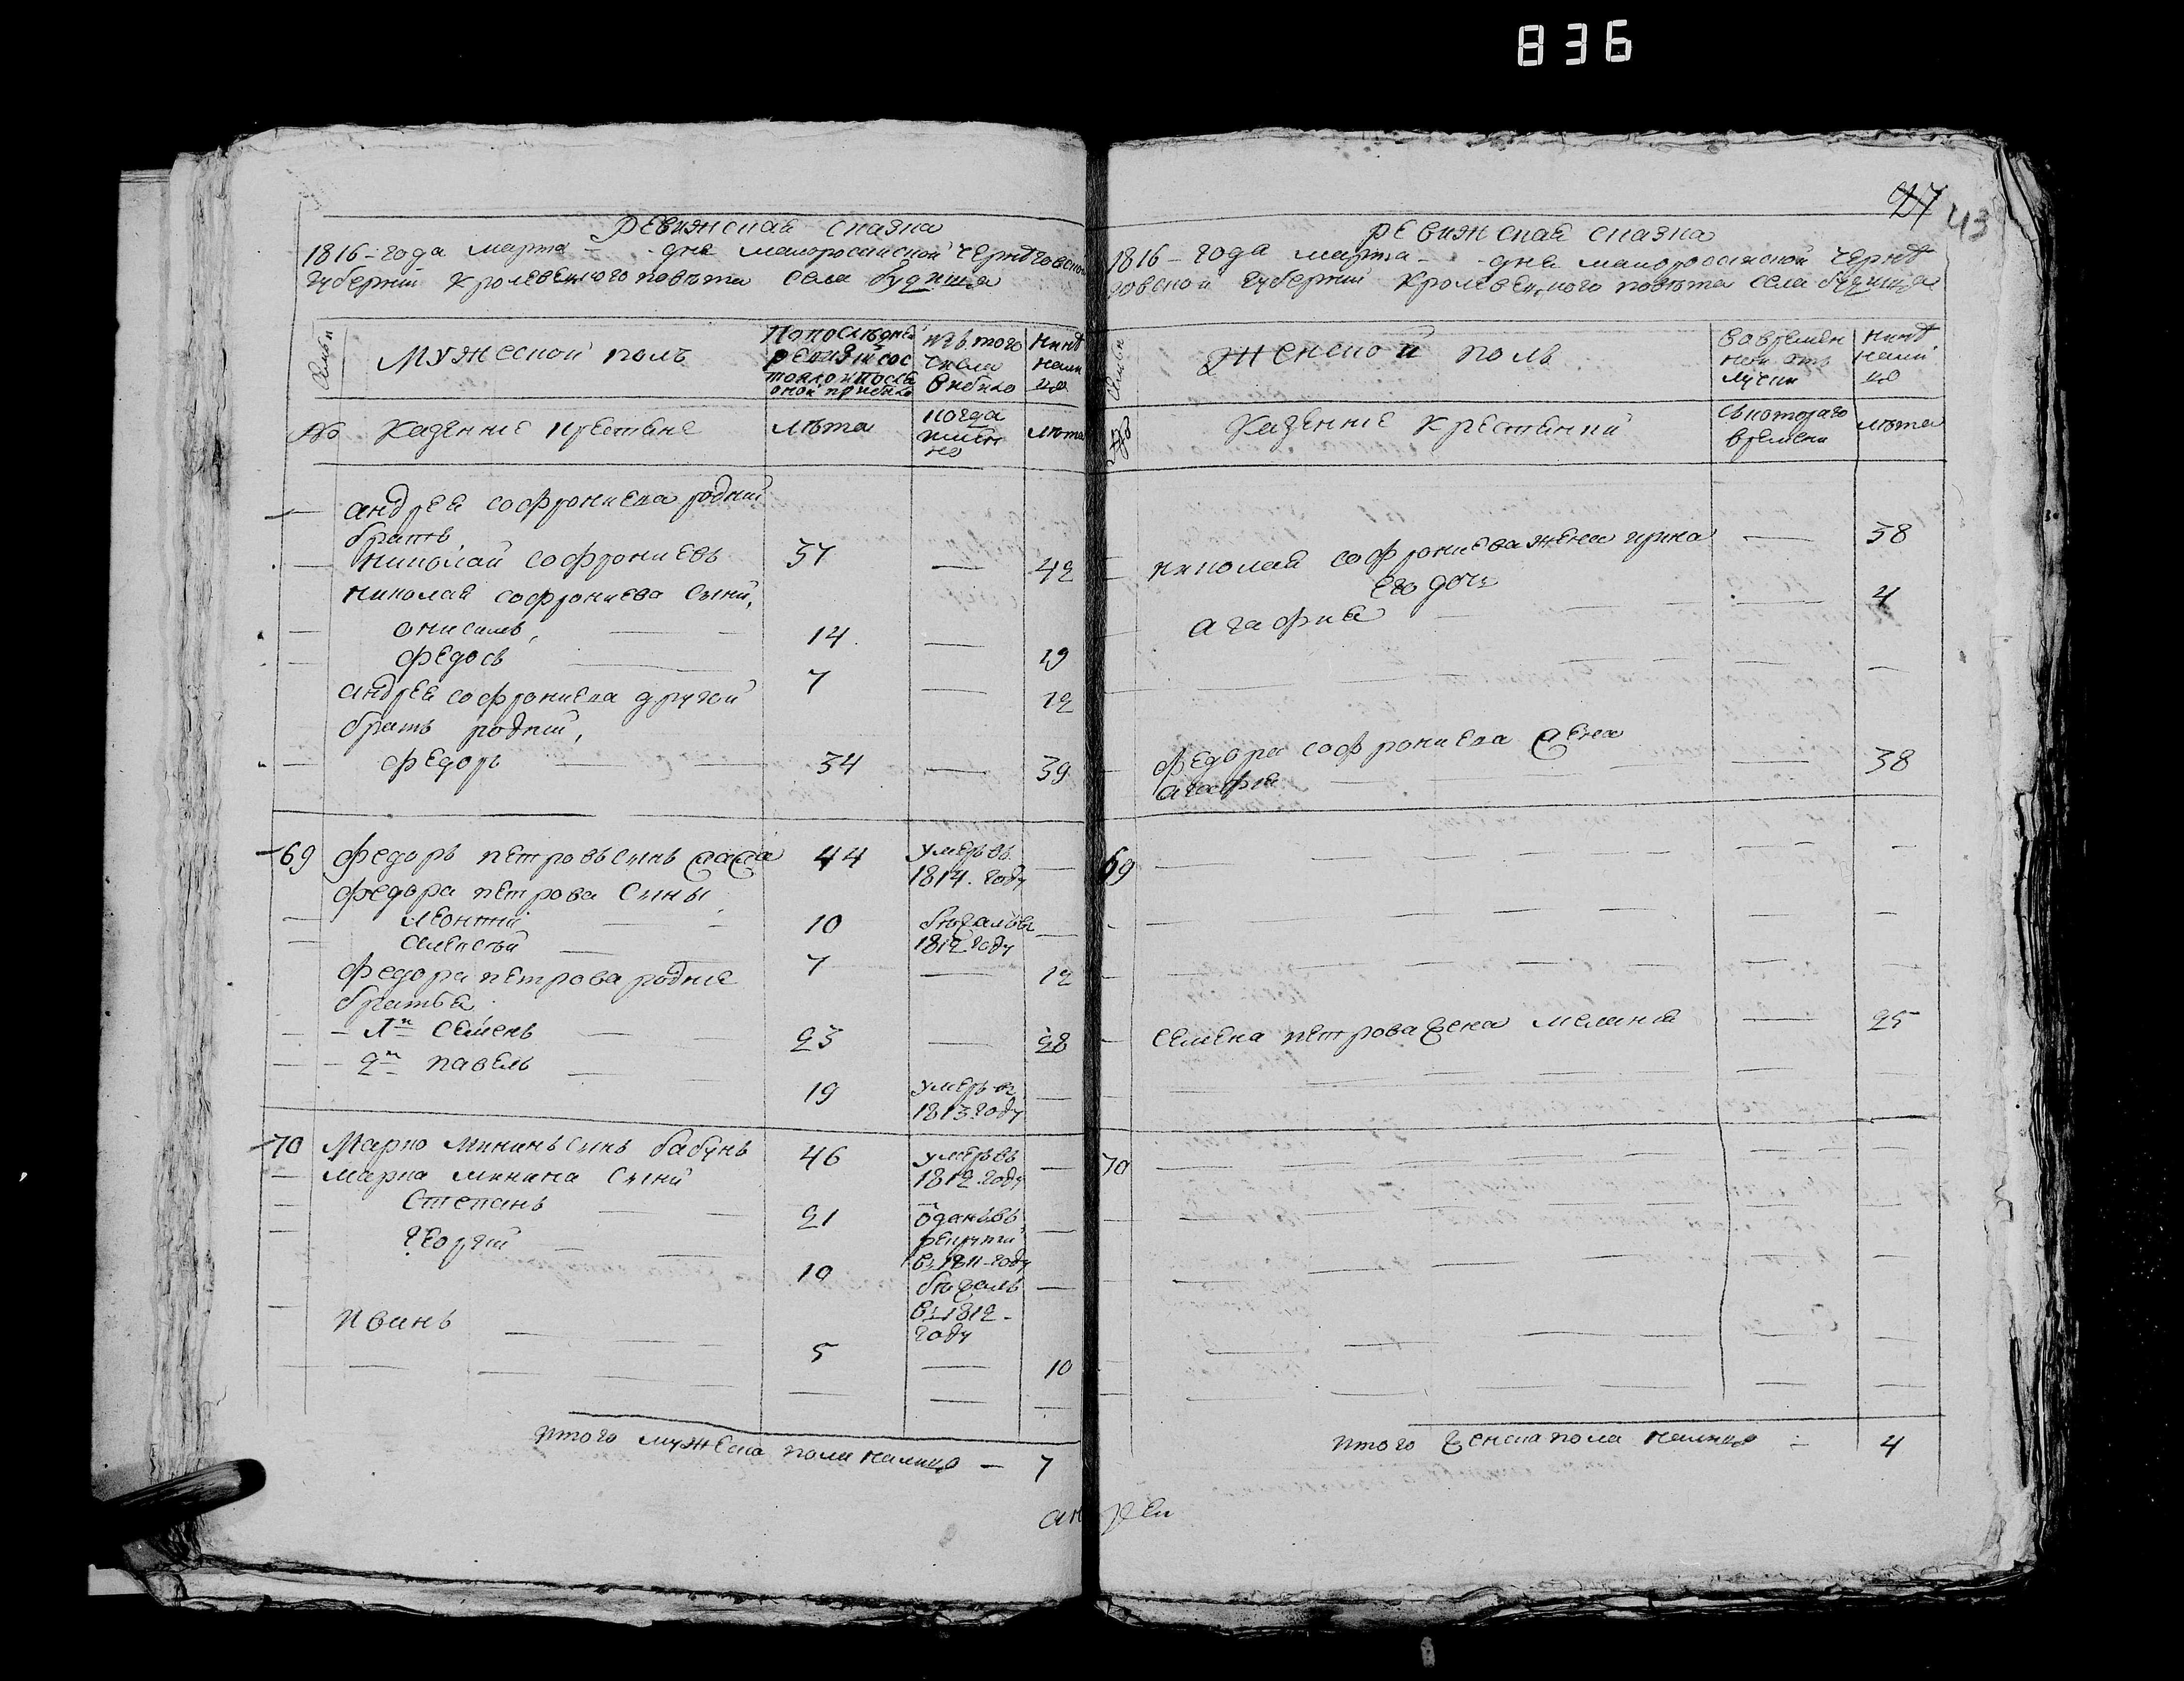 836
47
43
Ревижская сказка
1816-года марта - дня малоросийской Чернѣговской
губернїи Кролевецкого повѣта села будища
Семьи
Мужеской полъ
По последней
ревизїи сос
тояло и после
оной прибило
изъ того
числа
выбило
нинѣ
нали
цо
№
Казеннiе крестяне
лѣта
когда
имен
но
лѣта
андрея софрониева родний
братъ
николай софрониевъ 37 — 42
николая софрониева сыни,
онисимъ, 14 — 19
федосъ 7 — 12
андрея софрониева другой
братъ родний,
федоръ 34 — 39
69 федоръ петровъ синъ 44 умеръ въ
1814. году —
федора петрова сины
леонтий 10 бежалъ въ
1812 году —
алексей 7 — 12
федора петрова роднiе
братья
1й семенъ 23 — 28
2й павелъ 19 умеръ в
1813 году —
70 Марко мининъ синъ бабунъ 46 умеръ въ
1812 году —
марка минина сыни
Степанъ 21 отданъ въ
рекрути
въ 1811-году —
георгий 10 бежалъ
въ 1812-
году —
иванъ 5 — 10
итого мужеска пола налицо — 7
ревижская сказка
1816-года марта - дня малоросийской Чернѣ
говской губернїи Кролевецкого повѣта села будища
Семьи
Женской полъ
во времен
ной отъ
лучки
нинѣ
нали
цо
№
Казеннiе Крестянки
съ которого
времени
лѣта
николая софрониева жена ирина — 38
его дочь
агафия — 4
федора софрониева жена
агафия — 38
69
семена петрова жена меланья — 25
70
итого женска пола налицо — 4
андрей